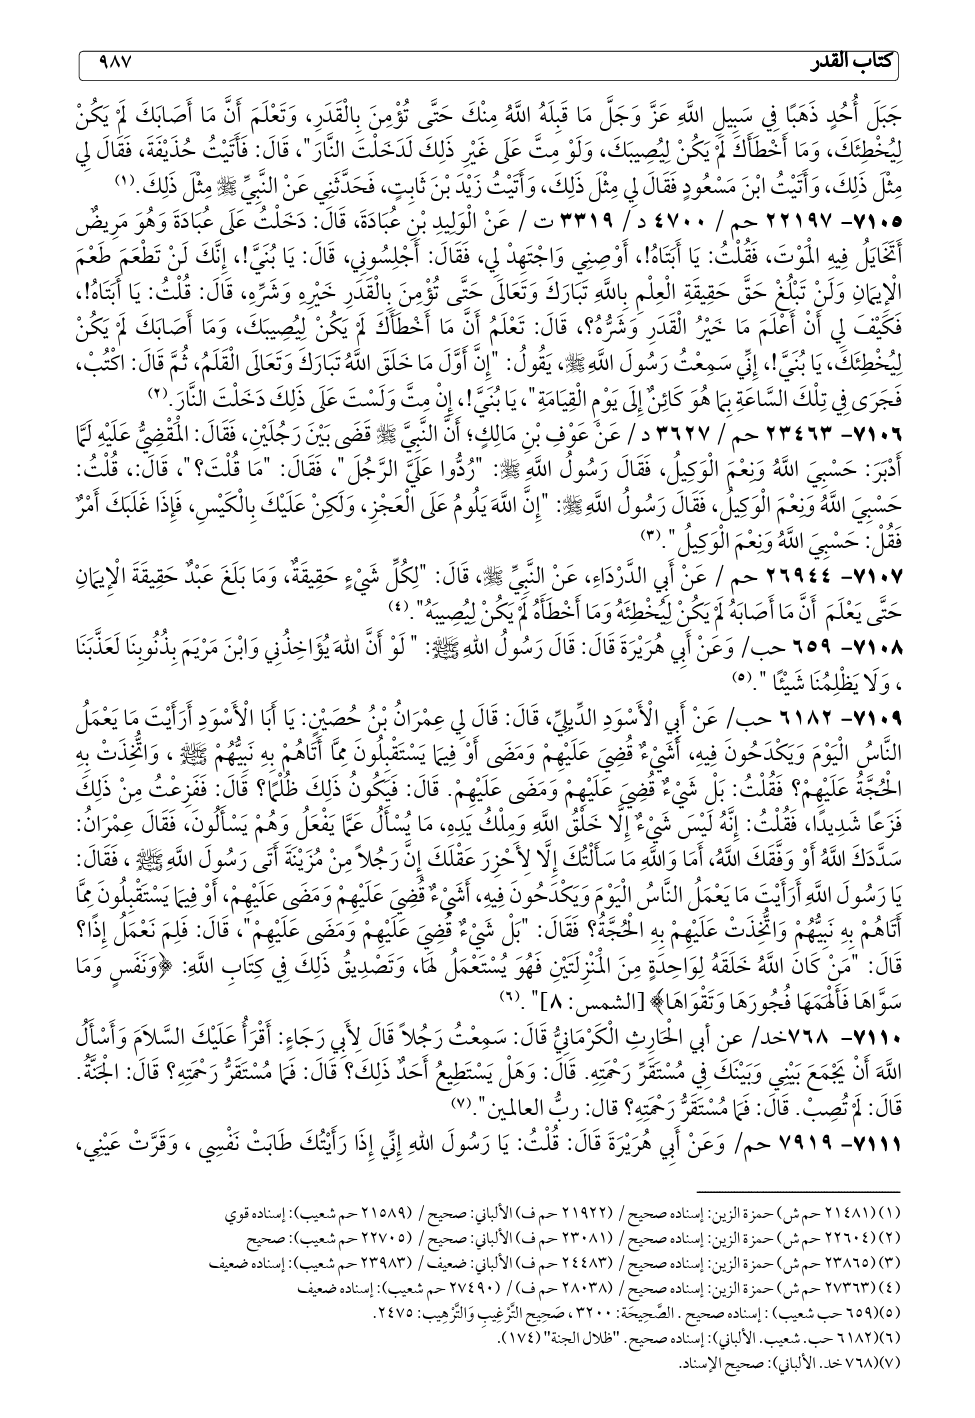 كتاب القدر ٩٨٧
جَبَلَ أُحُدٍ ذَهَبًا فِي سَبِيلِ اللَّهِ عَزَّ وَجَلَّ مَا قَبِلَهُ اللَّهُ مِنْكَ حَتَّى تُؤْمِنَ بِالْقَدَرِ، وَتَعْلَمَ أَنَّ مَا أَصَابَكَ لَمْ يَكُنْ
لِيُخْطِئَكَ، وَمَا أَخْطَأَكَ لَمْ يَكُنْ لِيُصِيبَكَ، وَلَوْ مِتَّ عَلَى غَيْرِ ذَلِكَ لَدَخَلْتَ النَّارَ"، قَالَ: فَأَتَيْتُ حُذَيْفَةَ، فَقَالَ لِي
مِثْلَ ذَلِكَ، وَأَتَيْتُ ابْنَ مَسْعُودٍ فَقَالَ لِي مِثْلَ ذَلِكَ، وَأَتَيْتُ زَيْدَ بْنَ ثَابِتٍ، فَحَدَّثَنِي عَنْ النَّبِيِّ ﷺ مِثْلَ ذَلِكَ.(١)
٧١٠٥- ٢٢١٩٧ حم / ٤٧٠٠ د / ٣٣١٩ ت / عَنْ الْوَلِيدِ بْنِ عُبَادَةَ، قَالَ: دَخَلْتُ عَلَى عُبَادَةَ وَهُوَ مَرِيضٌ
أَتَخَايَلُ فِيهِ الْمَوْتَ، فَقُلْتُ: يَا أَبَتَاهُ!، أَوْصِنِي وَاجْتَهِدْ لِي، فَقَالَ: أَجْلِسُونِي، قَالَ: يَا بُنَيَّ!، إِنَّكَ لَنْ تَطْعَمَ طَعْمَ
الْإِيمَانِ وَلَنْ تَبْلُغْ حَقَّ حَقِيقَةِ الْعِلْمِ بِاللَّهِ تَبَارَكَ وَتَعَالَى حَتَّى تُؤْمِنَ بِالْقَدَرِ خَيْرِهِ وَشَرِّهِ، قَالَ: قُلْتُ: يَا أَبَتَاهُ!،
فَكَيْفَ لِي أَنْ أَعْلَمَ مَا خَيْرُ الْقَدَرِ وَشَرُّهُ؟، قَالَ: تَعْلَمُ أَنَّ مَا أَخْطَأَكَ لَمْ يَكُنْ لِيُصِيبَكَ، وَمَا أَصَابَكَ لَمْ يَكُنْ
لِيُخْطِئَكَ، يَا بُنَيَّ!، إِنِّي سَمِعْتُ رَسُولَ اللَّهِ ﷺ، يَقُولُ: "إِنَّ أَوَّلَ مَا خَلَقَ اللَّهُ تَبَارَكَ وَتَعَالَى الْقَلَمُ، ثُمَّ قَالَ: اكْتُبْ،
فَجَرَى فِي تِلْكَ السَّاعَةِ بِمَا هُوَ كَائِنٌ إِلَى يَوْمِ الْقِيَامَةِ"، يَا بُنَيَّ!، إِنْ مِتَّ وَلَسْتَ عَلَى ذَلِكَ دَخَلْتَ النَّارَ.(٢)
٧١٠٦- ٢٣٤٦٣ حم / ٣٦٢٧ د/ عَنْ عَوْفِ بْنِ مَالِكٍ؛ أَنَّ النَّبِيَّ ﷺ قَضَى بَيْنَ رَجُلَيْنِ، فَقَالَ: الْمَقْضِيُّ عَلَيْهِ لَمَّا
أَدْبَرَ: حَسْبِيَ اللَّهُ وَنِعْمَ الْوَكِيلُ، فَقَالَ رَسُولُ اللَّهِ ﷺ: "رُدُّوا عَلَيَّ الرَّجُلَ"، فَقَالَ: "مَا قُلْتَ؟"، قَالَ:، قُلْتُ:
حَسْبِيَ اللَّهُ وَنِعْمَ الْوَكِيلُ، فَقَالَ رَسُولُ اللَّهِ ﷺ: "إِنَّ اللَّهَ يَلُومُ عَلَى الْعَجْزِ، وَلَكِنْ عَلَيْكَ بِالْكَيْسِ، فَإِذَا غَلَبَكَ أَمْرٌ
فَقُلْ: حَسْبِيَ اللَّهُ وَنِعْمَ الْوَكِيلُ".(٣)
٧١٠٧- ٢٦٩٤٤ حم / عَنْ أَبِي الدَّرْدَاءِ، عَنْ النَّبِيِّ ﷺ، قَالَ: "لِكُلِّ شَيْءٍ حَقِيقَةٌ، وَمَا بَلَغَ عَبْدٌ حَقِيقَةَ الْإِيمَانِ
حَتَّى يَعْلَمَ أَنَّ مَا أَصَابَهُ لَمْ يَكُنْ لِيُخْطِئَهُ وَمَا أَخْطَأَهُ لَمْ يَكُنْ لِيُصِيبَهُ".(٤)
٧١٠٨- ٦٥٩ حب/ وَعَنْ أَبِي هُرَيْرَةَ قَالَ: قَالَ رَسُولُ اللهِ ﷺ: " لَوْ أَنَّ اللهَ يُؤَاخِذُنِي وَابْنَ مَرْيَمَ بِذُنُوبِنَا لَعَذَّبَنَا
، وَلَا يَظْلِمُنَا شَيْئًا ".(٥)
٧١٠٩- ٦١٨٢ حب/ عَنْ أَبِي الْأَسْوَدِ الدِّيلِيِّ، قَالَ: قَالَ لِي عِمْرَانُ بْنُ حُصَيْنٍ: يَا أَبَا الْأَسْوَدِ أَرَأَيْتَ مَا يَعْمَلُ
النَّاسُ الْيَوْمَ وَيَكْدَحُونَ فِيهِ، أَشَيْءٌ قُضِيَ عَلَيْهِمْ وَمَضَى أَوْ فِيمَا يَسْتَقْبِلُونَ مِمَّا أَتَاهُمْ بِهِ نَبِيُّهُمْ ﷺ ، وَاتُّخِذَتْ بِهِ
الْحُجَّةُ عَلَيْهِمْ؟ فَقُلْتُ: بَلْ شَيْءٌ قُضِيَ عَلَيْهِمْ وَمَضَى عَلَيْهِمْ. قَالَ: فَيَكُونُ ذَلِكَ ظُلْمًا؟ قَالَ: فَفَزِعْتُ مِنْ ذَلِكَ
فَزَعًا شَدِيدًا، فَقُلْتُ: إِنَّهُ لَيْسَ شَيْءٌ إِلَّا خَلْقُ اللَّهِ وَمِلْكُ يَدِهِ، مَا يُسْأَلُ عَمَّا يَفْعَلُ وَهُمْ يَسْأَلُونَ، فَقَالَ عِمْرَانُ:
سَدَّدَكَ اللَّهُ أَوْ وَفَّقَكَ اللَّهُ، أَمَا وَاللَّهِ مَا سَأَلْتُكَ إِلَّا لِأَحْزِرَ عَقْلَكَ إِنَّ رَجُلاً مِنْ مُزَيْنَةَ أَتَى رَسُولَ اللَّهِ ﷺ ، فَقَالَ:
يَا رَسُولَ اللَّهِ أَرَأَيْتَ مَا يَعْمَلُ النَّاسُ الْيَوْمَ وَيَكْدَحُونَ فِيهِ، أَشَيْءٌ قُضِيَ عَلَيْهِمْ وَمَضَى عَلَيْهِمْ، أَوْ فِيمَا يَسْتَقْبِلُونَ مِمَّا
أَتَاهُمْ بِهِ نَبِيُّهُمْ وَاتُّخِذَتْ عَلَيْهِمْ بِهِ الْحُجَّةُ؟ فَقَالَ: "بَلْ شَيْءٌ قُضِيَ عَلَيْهِمْ وَمَضَى عَلَيْهِمْ"، قَالَ: فَلِمَ نَعْمَلُ إِذًا؟
قَالَ: "مَنْ كَانَ اللَّهُ خَلَقَهُ لِوَاحِدَةٍ مِنَ الْمَنْزِلَتَيْنِ فَهُوَ يُسْتَعْمَلُ لَهَا، وَتَصْدِيقُ ذَلِكَ فِي كِتَابِ اللَّهِ: ﴿وَنَفَسٍ وَمَا
سَوَّاهَا فَأَلْهَمَهَا فُجُورَهَا وَتَقْوَاهَا﴾ [الشمس: ٨]" .(٦)
٧١١٠- ٧٦٨خد/ عن أبي الْحَارِثِ الْكَرْمَانِيُّ قَالَ: سَمِعْتُ رَجُلاً قَالَ لِأَبِي رَجَاءٍ: أَقْرَأُ عَلَيْكَ السَّلاَمَ وَأَسْأَلُ
اللَّهَ أَنْ يَجْمَعَ بَيْنِي وَبَيْنَكَ فِي مُسْتَقَرِّ رَحْمَتِهِ. قَالَ: وَهَلْ يَسْتَطِيعُ أَحَدٌ ذَلِكَ؟ قَالَ: فَمَا مُسْتَقَرُّ رَحْمَتِهِ؟ قَالَ: الْجَنَّةُ.
قَالَ: لَمْ تُصِبْ. قَالَ: فَمَا مُسْتَقَرُّ رَحْمَتِهِ؟ قال: ربُّ العالمين".(٧)
٧١١١- ٧٩١٩ حم/ وَعَنْ أَبِي هُرَيْرَةَ قَالَ: قُلْتُ: يَا رَسُولَ اللهِ إِنِّي إِذَا رَأَيْتُكَ طَابَتْ نَفْسِي ، وَقَرَّتْ عَيْنِي،
(١)(٢١٤٨١ حم ش) حمزة الزين: إسناده صحيح / (٢١٩٢٢ حم ف) الألباني: صحيح / (٢١٥٨٩ حم شعيب): إسناده قوي
(٢)(٢٢٦٠٤ حم ش) حمزة الزين: إسناده صحيح / (٢٣٠٨١ حم ف) الألباني: صحيح / (٢٢٧٠٥ حم شعيب): صحيح
(٣)(٢٣٨٦٥ حم ش) حمزة الزين: إسناده صحيح / (٢٤٤٨٣ حم ف) الألباني: ضعيف / (٢٣٩٨٣ حم شعيب): إسناده ضعيف
(٤)(٢٧٣٦٣ حم ش) حمزة الزين: إسناده صحيح / (٢٨٠٣٨ حم ف)/ (٢٧٤٩٠ حم شعيب): إسناده ضعيف
(٥)(٦٥٩ حب شعيب) : إسناده صحيح . الصَّحِيحَة: ٣٢٠٠ ، صَحِيح التَّرْغِيبِ وَالتَّرْهِيب: ٢٤٧٥.
(٦)(٦١٨٢ حب. شعيب. الألباني): إسناده صحيح. "ظلال الجنة" (١٧٤).
(٧)(٧٦٨ خد. الألباني): صحيح الإسناد.